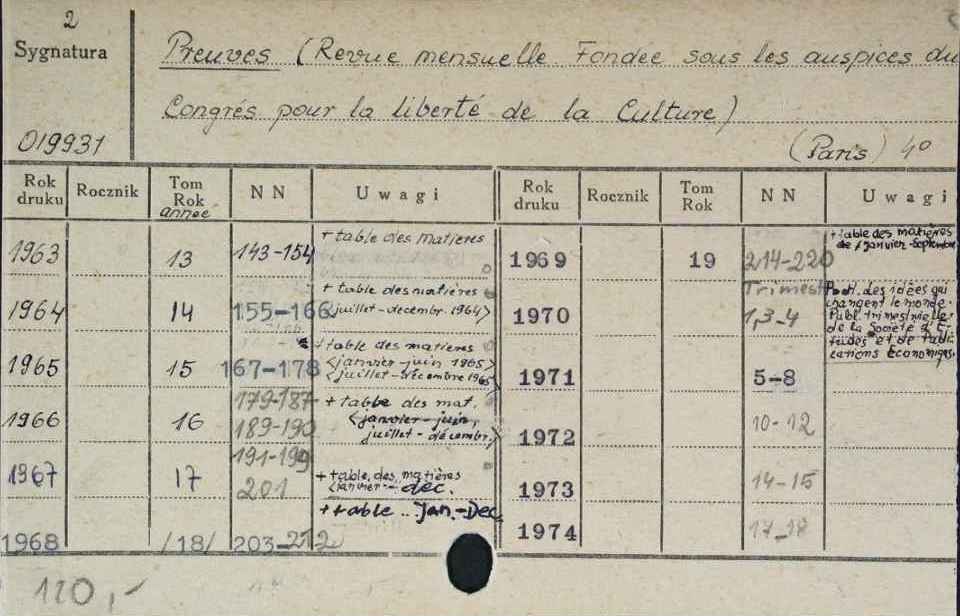 2
Sygnatura
Preuves (Revue mensuelle. Fondée sous les auspices du
Congrés pour la liberté de la Culture)
019931
(Paris) 4°
Rok druku Rocznik Tom Rok année NN Uwagi Rok druku Rocznik Tom Rok NN Uwagi
1963 13 143-154 + table des matières
1964 14 155-166 + table des matières
<juillet-décembr. 1964>
1965 15 167-178 + table des matieres
<janvier-juin 1965>
<juillet-décembre 1965>
1966 16 179-187
189-190 + tabbe des mat.
<janvier-juin,
juillet-décembr.>
1967 17 191-199
201 + table des matières
<janvier-déc.
1968 /18/ 203-212 + table .. Jan.-Dec.
1969 19 214-220 + table des matières
de janvier-Septembre
Trimest
1970 1,3-4 Publ. des idées qui
changent le monde.
Publ. trimestrielle
de la Société d'E-
tudes et de Publi-
cations Économiques
1971 5-8
1972 10-12
1973 14-15
1974 17-18
120,-